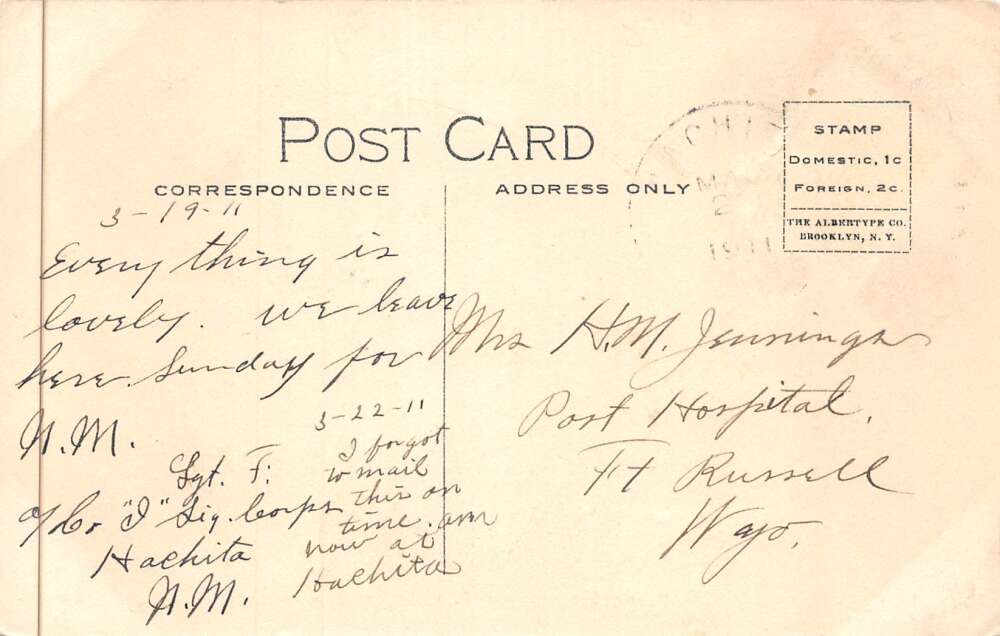 POST CARD
CORRESPONDENCE
ADDRESS ONLY
STAMP
DOMESTIC, 1C
FOREIGN, 2C.
THE ALBERTYPE CO.
BROOKLYN, N. Y.
1911
3-19-11
Every thing is
lovely. we leave
here Sunday for
N.M.
Sgt. F.
c/o Co "I" Sig. Corps
Hachita
N.M.
3-22-11
I forgot
to mail
this on
time. am
now at
Hachita
Mrs H.M. Jennings
Post Hospital,
Ft Russell
Wyo.